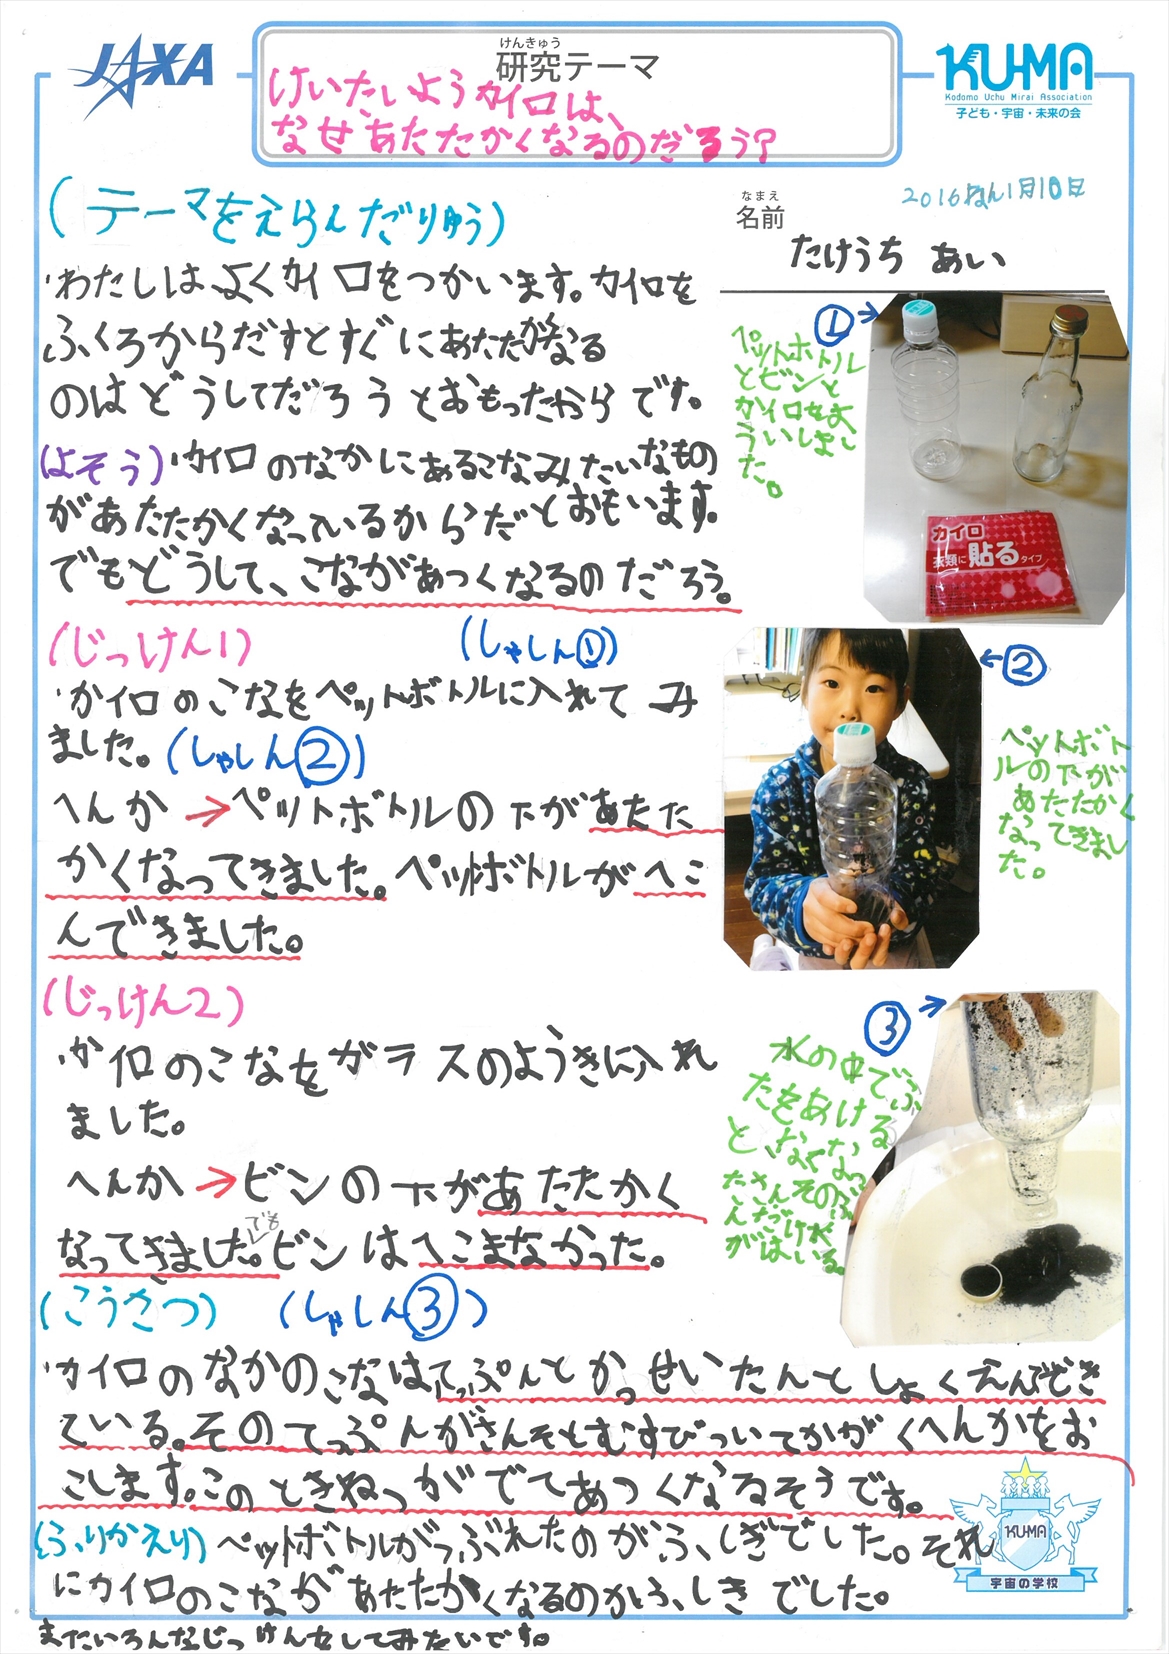 JAXA
けんきゅう
研究テーマ
けいたいようカイロは、
なぜあたたかくなるのだろう?
KU-MA
Kodomo Uchu Mirai Association
子ども・宇宙・未来の会
(テーマをえらんだりゆう)
なまえ
名前
2016ねん1月10日
たけうち あい
・わたしは、よくカイロをつかいます。カイロを
ふくろからだすとすぐにあたたかくなる
のはどうしてだろうとおもったからです。
(よそう)・カイロのなかにあるこなみたいなもの
があたたかくなっているからだとおもいます。
でもどうして、こながあつくなるのだろう。
①→
ペットボトル
とビンと
カイロをよ
ういしまし
た。
カイロ
衣類に貼るタイプ
(じっけん1) (しゃしん①)
・カイロのこなをペットボトルに入れてみ
ました。(しゃしん②)
へんか→ペットボトルの下があたた
かくなってきました。ペットボトルがへこ
んできました。
←②
ペットボト
ルの下が
あたたかく
なってきまし
た。
(じっけん2)
・カイロのこなをガラスのようきに入れ
ました。
へんか→ビンの下があたたかく
なってきました。でもビンはへこまなかった。
③→
水の中でふ
たをあける
と、なくなっ
たさんそのぶ
んだけ水
がはいる。
(こうさつ) (しゃしん③)
・カイロのなかのこなはてっぷんとかっせいたんとしょくえんでき
ている。そのてっぷんがさんそとむすびついてかがくへんかをお
こします。このときねつがでてあつくなるそうです。
(ふりかえり)ペットボトルがつぶれたのがふしぎでした。それ
にカイロのこながあたたかくなるのがふしぎでした。
またいろんなじっけんをしてみたいです。
KU-MA
宇宙の学校